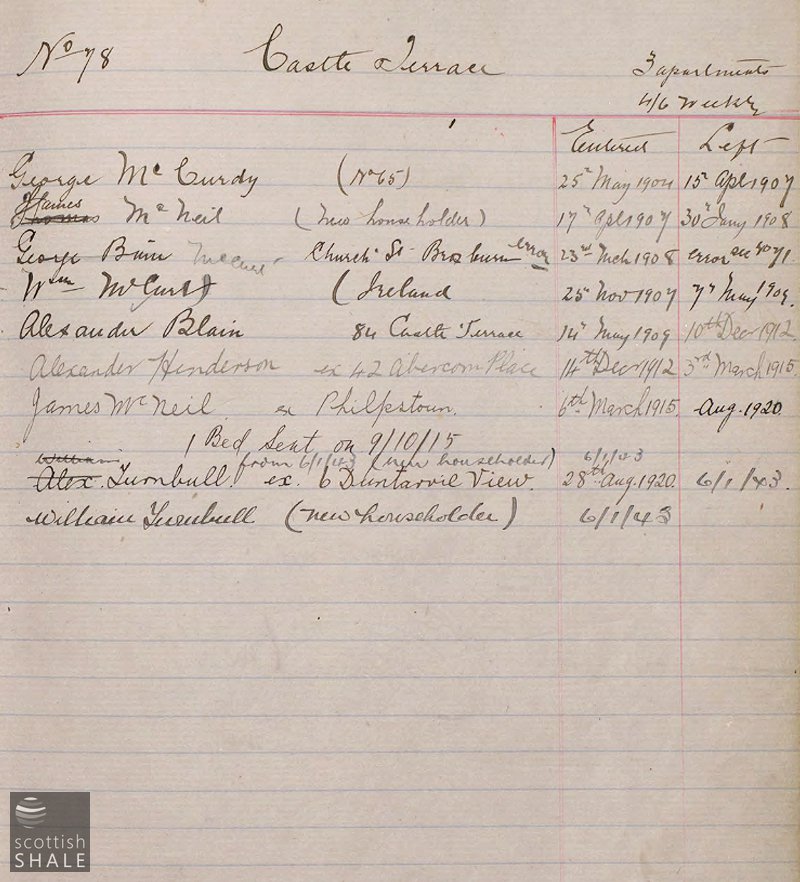 No 78 Castle Terrace 3 apartments
4/6 Weekly
Entered Left
George Mc Curdy (No 65) 25th May 1904 15th Apl 1907
James
Thomas Mc Neil (New householder) 17th Apl 1907 30th Jany 1908
George Bain Church St Broxburn error 23rd Mch 1908 error see No 71
Wm McCurdy (Ireland 25 Nov 1907 7th May 1909.
Alexander Blain 84 Castle Terrace 14th May 1909 10th Dec 1912
Alexander Henderson ex 42 Abercorn Place 14th Dec 1912 3rd March 1915.
James McNeil ex Philpstoun. 6th March 1915. Aug. 1920
1 Bed Sent on 9/10/15
William from 6/1/43 (new householder) 6/1/43
Alex. Turnbull. ex. 6 Duntarvie View. 28th Aug. 1920. 6/1/43.
William Turnbull (new householder) 6/1/43
scottish
SHALE